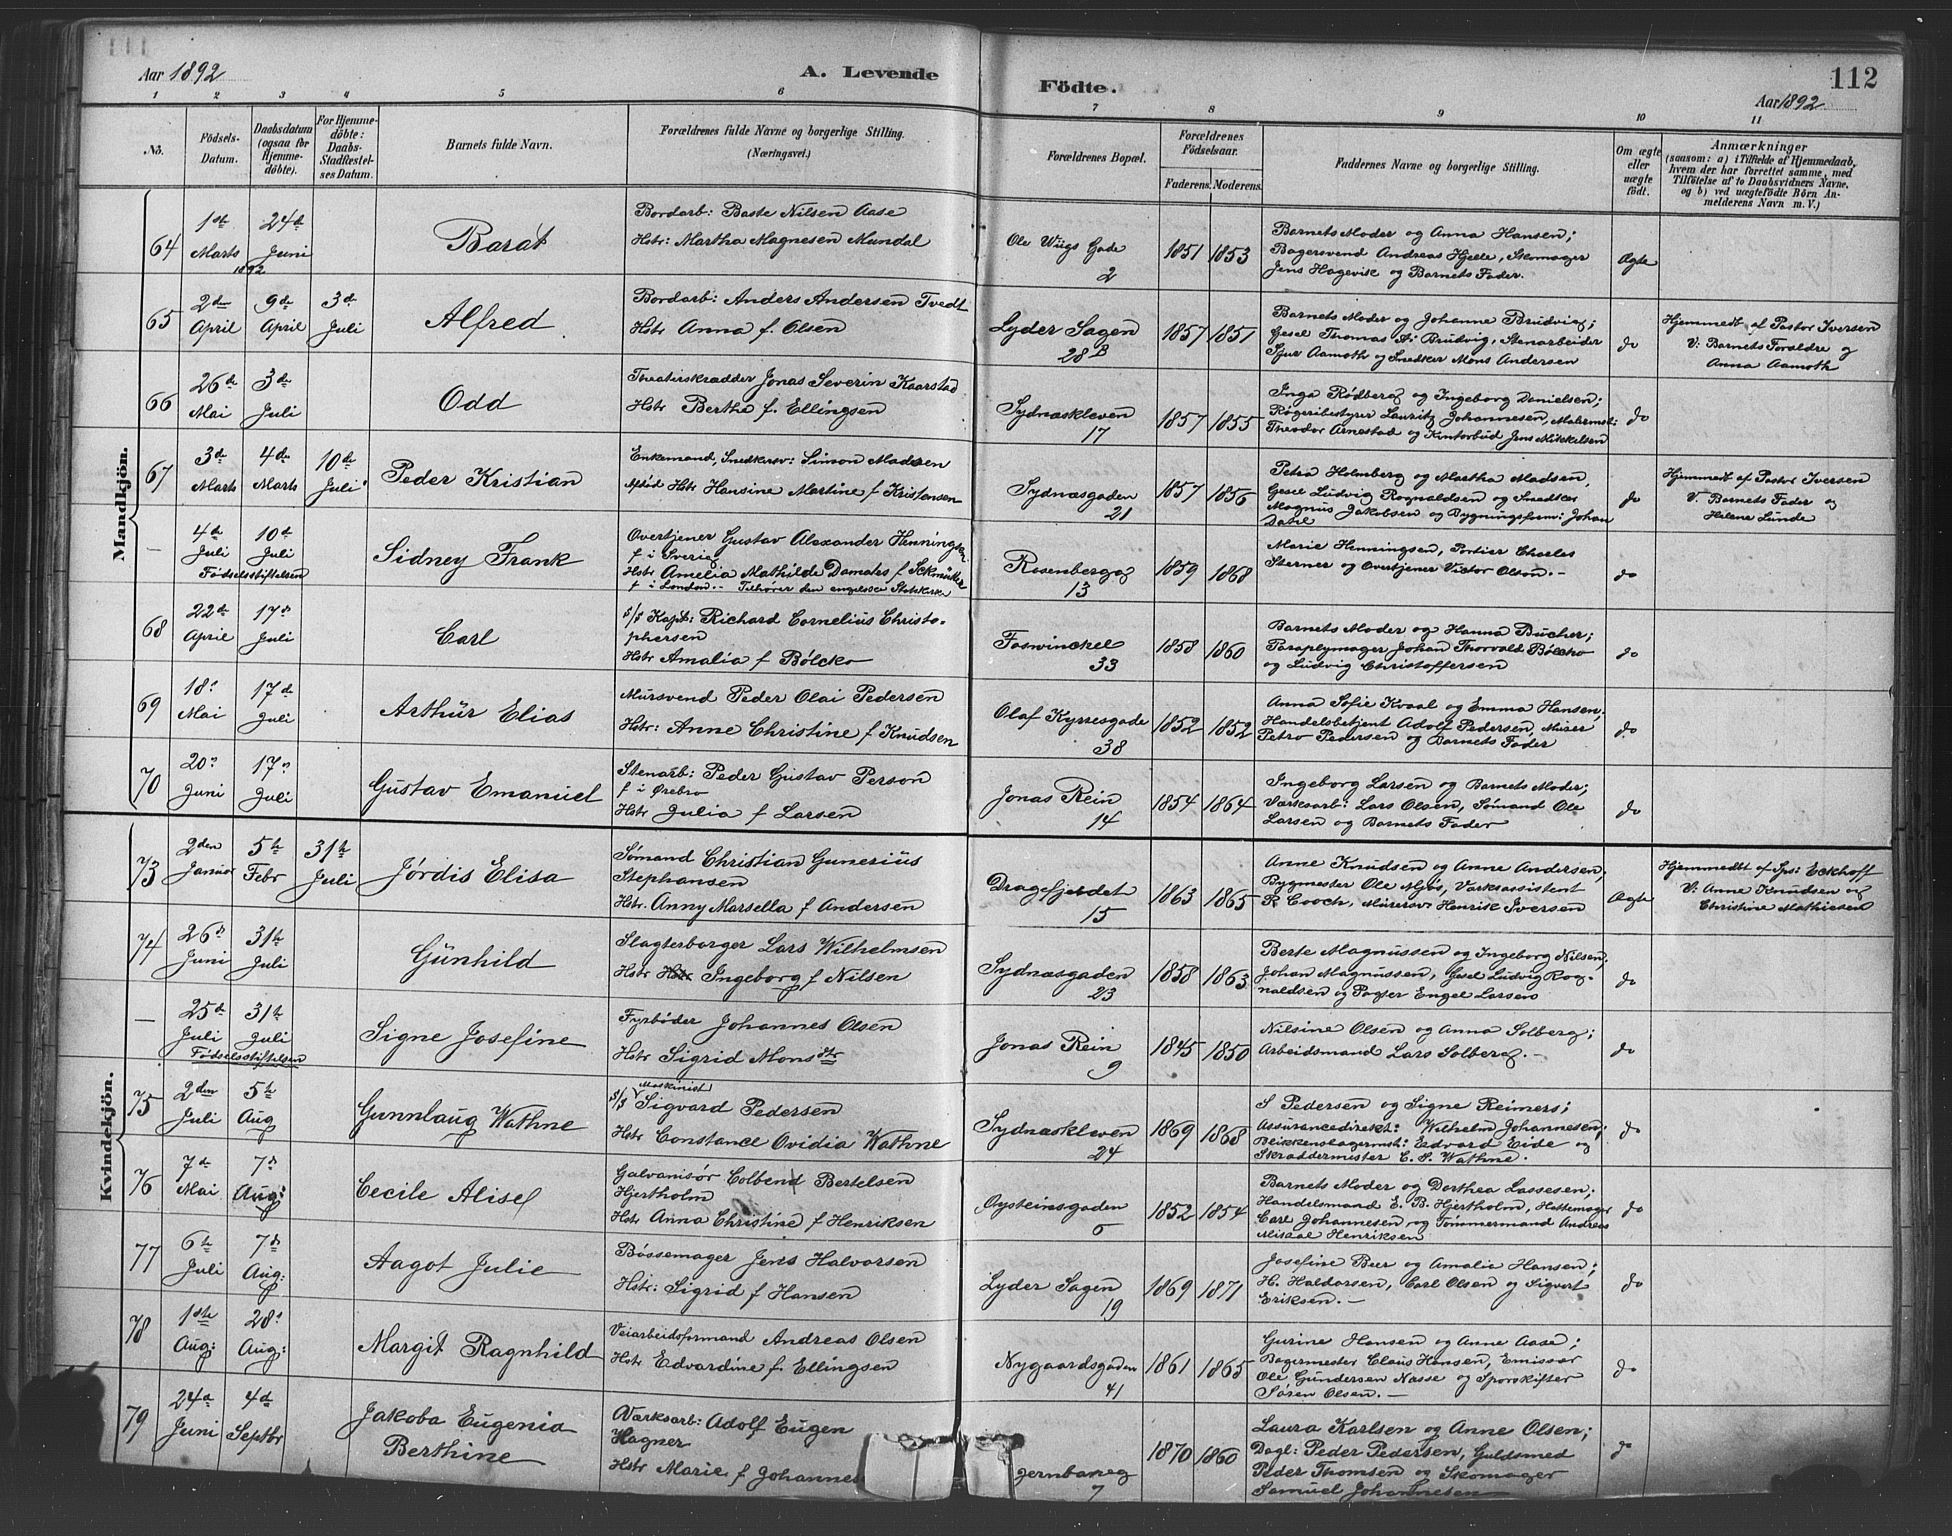 Aar 1892
A. Levende Födte.
112
Aar 1892
1 2 3 4 5 6 7 8 9 10 11
No.
Födsels-Datum.
Daabsdatum (ogsaa for Hjemmedöbte).
For Hjemmedöbte: Daabs-Stadfæstelses Datum.
Barnets fulde Navn.
Forældrenes fulde Navne og borgerlige Stilling.
(Næringsvei.)
Forældrenes Bopæl.
Forældrenes Födselsaar.
Faderens. Moderens.
Faddernes Navne og borgerlige Stilling.
Om ægte eller uægte født.
Anmærkninger
(saasom: a) i Tilfælde af Hjemmedaab, hvem der har forrettet samme, med Tilföielse af to Daabsvidners Navne, og b) ved uægtefödte Börn Anmelderens Navn m. V.)
Mandkjön.
64
1ste Marts 1892
24de Juni
Barat
Bordarb: Baste Nilsen Aase
Hstr: Martha Magnesen Mundal
Ole Wiigs Gade
2
1851 1853
Barnets Moder og Anna Hansen;
Bagersvend Andreas Hjelle, Skomager
Jens Hagevik og Barnets Fader.
Ægte
65
2den April
9de April
3de Juli
Alfred
Bordarb: Anders Andersen Tvedt
Hstr Anna f. Olsen
Lyder Sagen
28 B
1857 1851
Barnets Moder og Johanne Brudvig;
Gesel Thomas A. Brudvig, Stenarbeider
Sjur Aamoth og Snedker Mons Andersen
do
Hjemmedt af Pastor Iversen
V. Barnets Forældre og
Anna Aamoth
66
26de Mai
3de Juli
Odd
Jonas Severin Kaarstad
Hstr Bertha f. Ellingsen
Sydnæskleven
17
1857 1855
Inga Rödberg og Ingeborg Danielsen;
Røgeribestyrer Lauritz Johannesen, Malermst:
Theodor Arnestad og Kontorbud Jens Mikkelsen
do
67
3de Marts
4de Marts
10de Juli
Peder Kristian
Enkemand, Snedkersv: Simon Madsen
Afdöd Hstr Hansine Martine f Kristansen
Sydnæsgaden
21
1857 1856
Petra Holmberg og Martha Madsen,
Gesel Ludvig Rognaldsen og Snedker
Magnus Jakobsen og Bygningsform: Johan
Dahl
do
Hjemmedt af Pastor Iversen
V. Barnets Fader og
Helene Lunde
—
4de Juli
10de Juli
Födselsstiftelsen
Sidney Frank
Overtjener Gustav Alexander Henningsen
f i Sverig
Hstr Amelia Mathilde Damates f Schmücker
f i London.- Tilhører den engelske Statskirke
Rosenbergg
13
1859 1868
Marie Henningsen, Portier Charles
Sterner og Overtjener Victor Olson. -
do
68
22de April
17de Juli
Carl
s/s Kapt: Richard Cornelius Christo-
phersen
Hstr Amalia f Bölcko
Foswinckel
33
1858 1860
Barnets Moder og Hanna Bucher;
Paraplymager Johan Thorvald Bölcko
og Ludvig Christoffersen
do
69
18de Mai
17de Juli
Arthur Elias
Mursvend Peder Olai Pedersen
Hstr: Anne Christine f Knudsen
Olaf Kyrresgade
38
1852 1852
Anna Sofie Kvaal og Emma Hansen,
Handelsbetjent Adolf Pedersen, Murer
Petro Pedersen og Barnets Fader
do
70
20de Juni
17de Juli
Gustav Emanuel
Stenarb: Peder Gustav Person
f i Örebro
Hstr Julia f Larsen
Jonas Rein
14
1854 1864
Ingeborg Larsen og Barnets Moder;
Værksarb: Lars Olsen, Sömand Ole
Larsen og Barnets Fader
do
Kvindekjön.
73
2den Januar
5te Febr
31te Juli
Jørdis Elisa
Sømand Christian Gunerius
Stephansen
Hstr. Anny Marsella f Andersen
Dragefjeldet
15
1863 1865
Anne Knudsen og Anne Andersen,
Bygmester Ole Mjøs, Værksassistent
R Cooch, Murersv Henrik Iversen
Ægte
Hjemmedt af Sp: Eckhoff
V: Anne Knudsen og
Christine Mathiesen
74
26de Juni
31te Juli
Gunhild
Slagterborger Lars Wilhelmsen
Hstr Hstr Ingeborg f Nilsen
Sydnæsgaden
23
1858 1863
Berte Magnussen og Ingeborg Nilsen,
Johan Magnussen, Gesel Ludvig Rog-
naldsen og Engel Larsen
do
—
25de Juli
31te Juli
Födselsstiftelsen
Signe Josefine
Fyrböder Johannes Olsen
Hstr Sigrid Monsdtr
Jonas Rein
9
1845 1850
Nilsine Olsen og Anna Solberg;
Arbeidsmand Lars Solberg. -
do
75
2den Juli
5te Aug
Gunnlaug Wathne
s/s Maskinist Sigvard Pedersen
Hstr Constance Ovidia Wathne
Sydnæskleven
24
1869 1868
S Pedersen og Signe Reimers;
Assurancedirekt: Wilhelm Johannesen;
Blikkenslagermst: Edvard Eide og
Skræddermester E. S. Wathne.
do
76
7de Mai
7de Aug:
Cecilie Alise
Galvanisör Colbend Bertelsen
Hjertholm
Hstr Anna Christine f Henriksen
Øysteinsgaden
6
1852 1854
Barnets Moder og Dorthea Lassesen;
Handelsmand E. B. Hjertholm, Hattemager
Carl Johannesen og Tömmermand Andreas
Misael Henriksen
do
77
6te Juli
7de Aug:
Aagot Julie
Bössemager Jens Halvorsen
Hstr: Sigrid f Hansen
Lyder Sagen
19
1869 1871
Josefine Beer og Amalie Hansen;
H. Haldorsen, Carl Olsen og Sigvert
Eriksen. -
do
78
1ste Aug:
28de Aug:
Margit Ragnhild
Veiarbeidsformand Andreas Olsen
Hstr Edvardine f. Ellingsen
Nygaardsgaden
41
1861 1865
Gurine Hansen og Anne Aase;
Bagermester Claus Hansen, Emissær
Ole Gundersen Nasse og Sporskifter
Søren Olsen. -
do
79
24de Juni
4de Septbr
Jakoba Eugenia
Berthine
Værksarb: Adolf Eugen
Hagner
Hstr Marie f Johannes
jernbaneg
7
1870 1860
Laura Karlsen og Anne Olsen;
Dagl: Peder Pedersen, Guldsmed
Peder Thomsen og Skomager
Samuel Johannesen
do